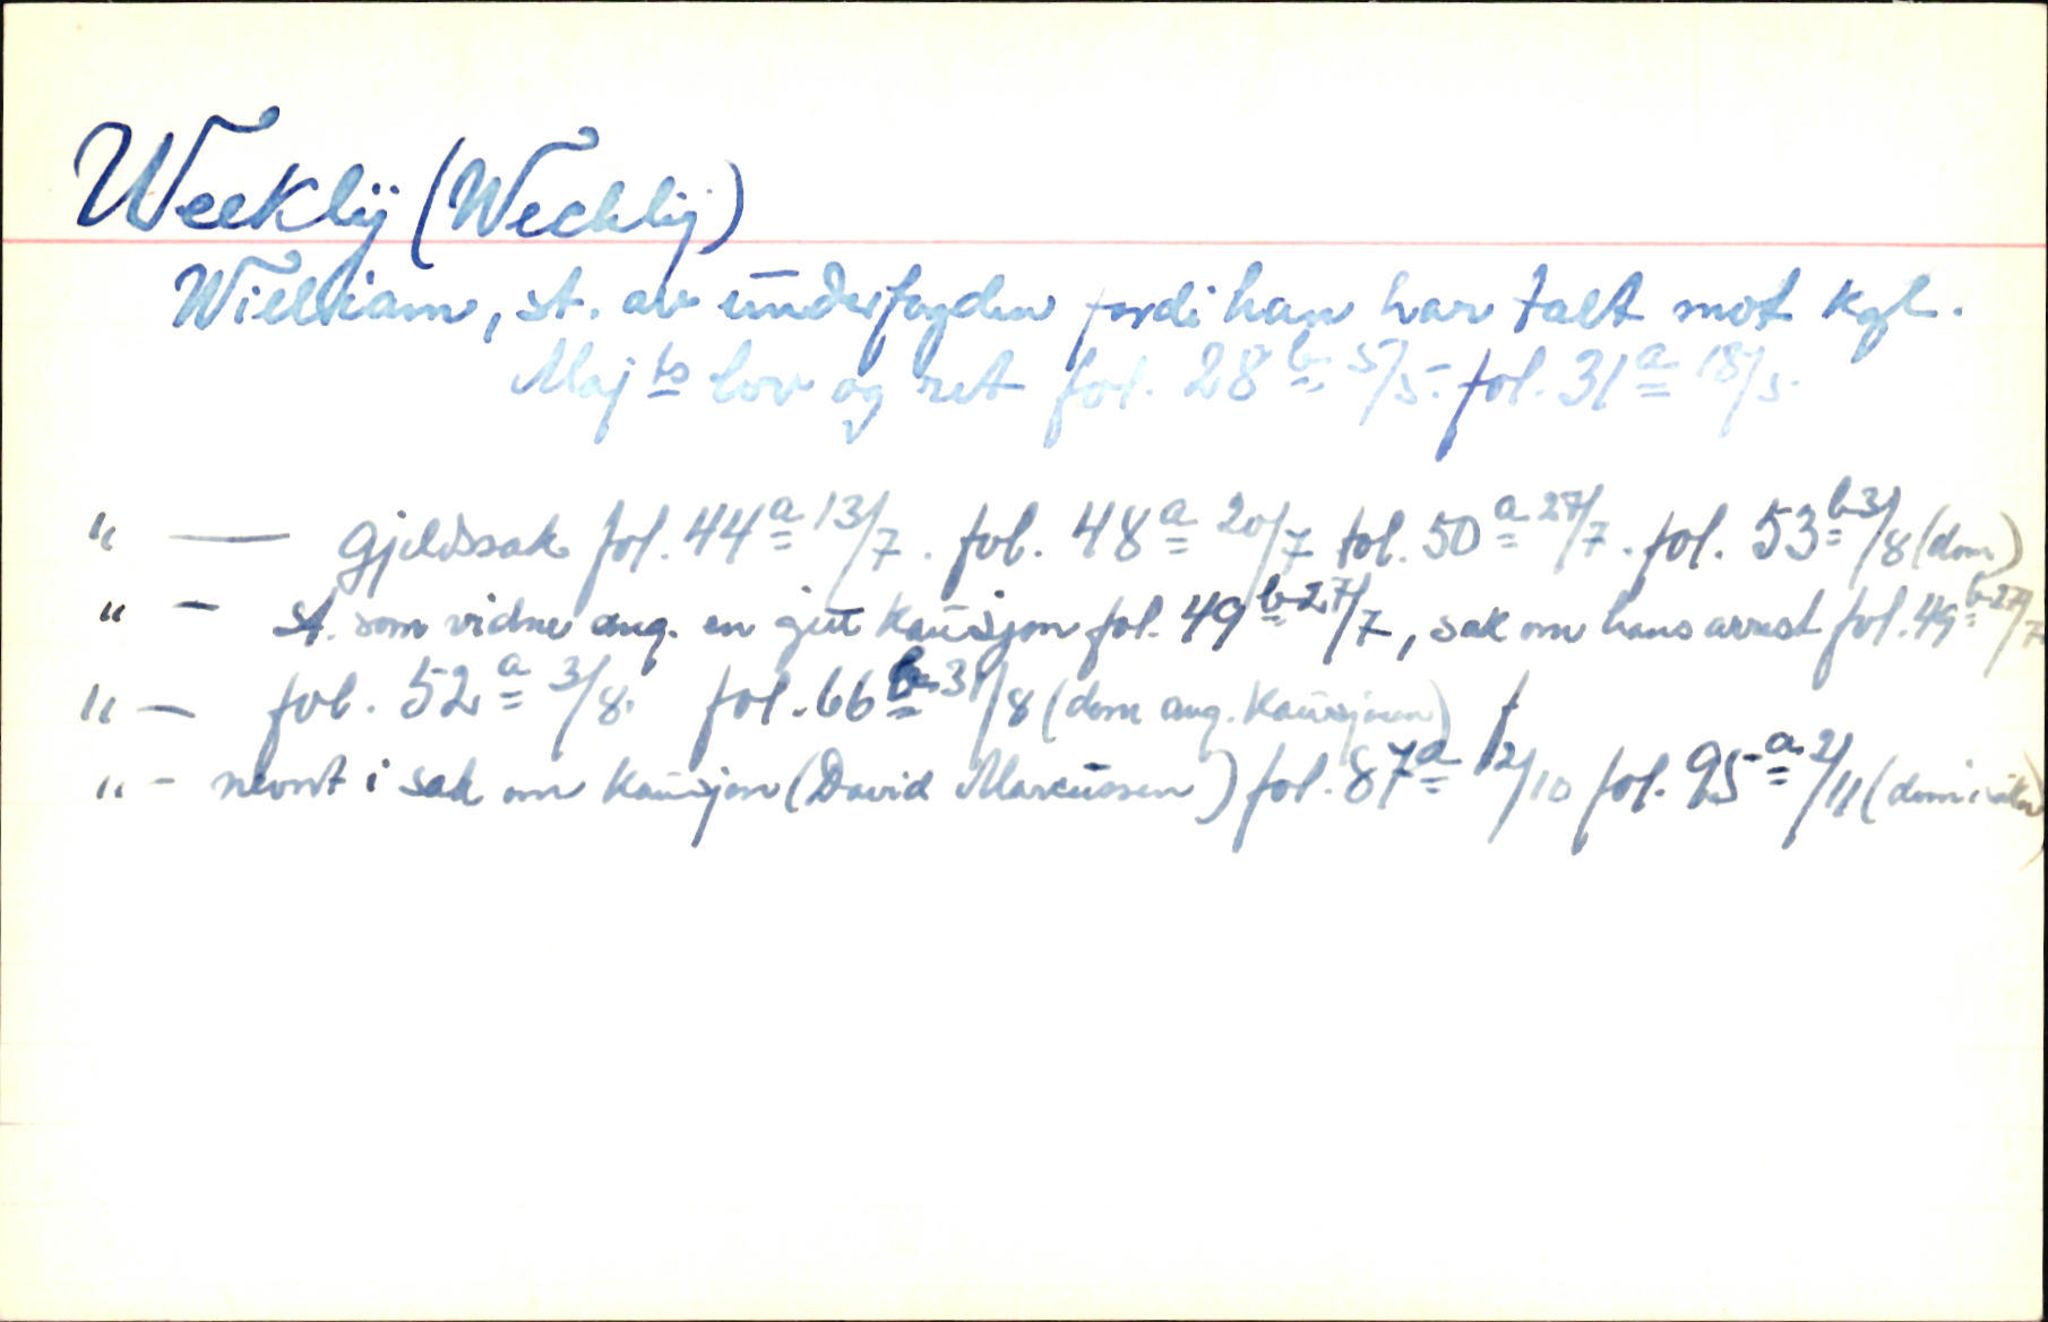 Weeklij (Wecklij)
William, st. av underfogden fordi han har talt mot kgl.
Maj ts lov og ret fol. 28 b 5/5. fol. 31 a 18/5.
" — gjeldssak fol. 44 a 13/7. fol. 48 a 20/7 fol. 50 a 27/7. fol. 53 b 3/8 (dom)
" — st. som vidne ang. en gut kausjon fol. 49 b 27/7, sak om hans arrest fol. 49 b 27/7
" — fol. 52 a 3/8. fol. 66 b 31/8 (dom ang. kausjonen)
" — nevnt i sak om kausjon (David Marcussen) fol. 87 a 12/10 fol. 95 a 2/11 (dom i